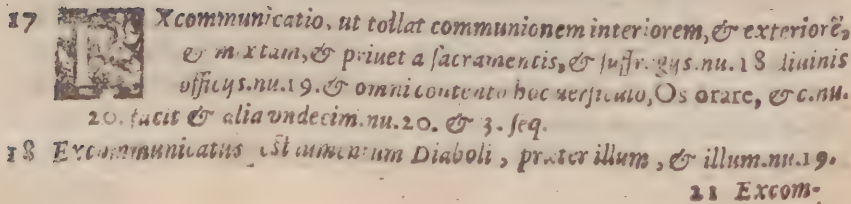 17 EXcommunicatio, ut tollat communionem interiorem, & exteriorē,
& mixtam, & priuet a sacramentis, & suffragys.nu.18 diuinis
officys.nu.19.& omni contento hoc uersiculo, Os orare, &c.nu.
20. facit & alia vndecim.nu.20. & 3. seq.
18 Excommunicatus est iumentum Diaboli, præter illum, & illum.nu.19.
21 Excom-